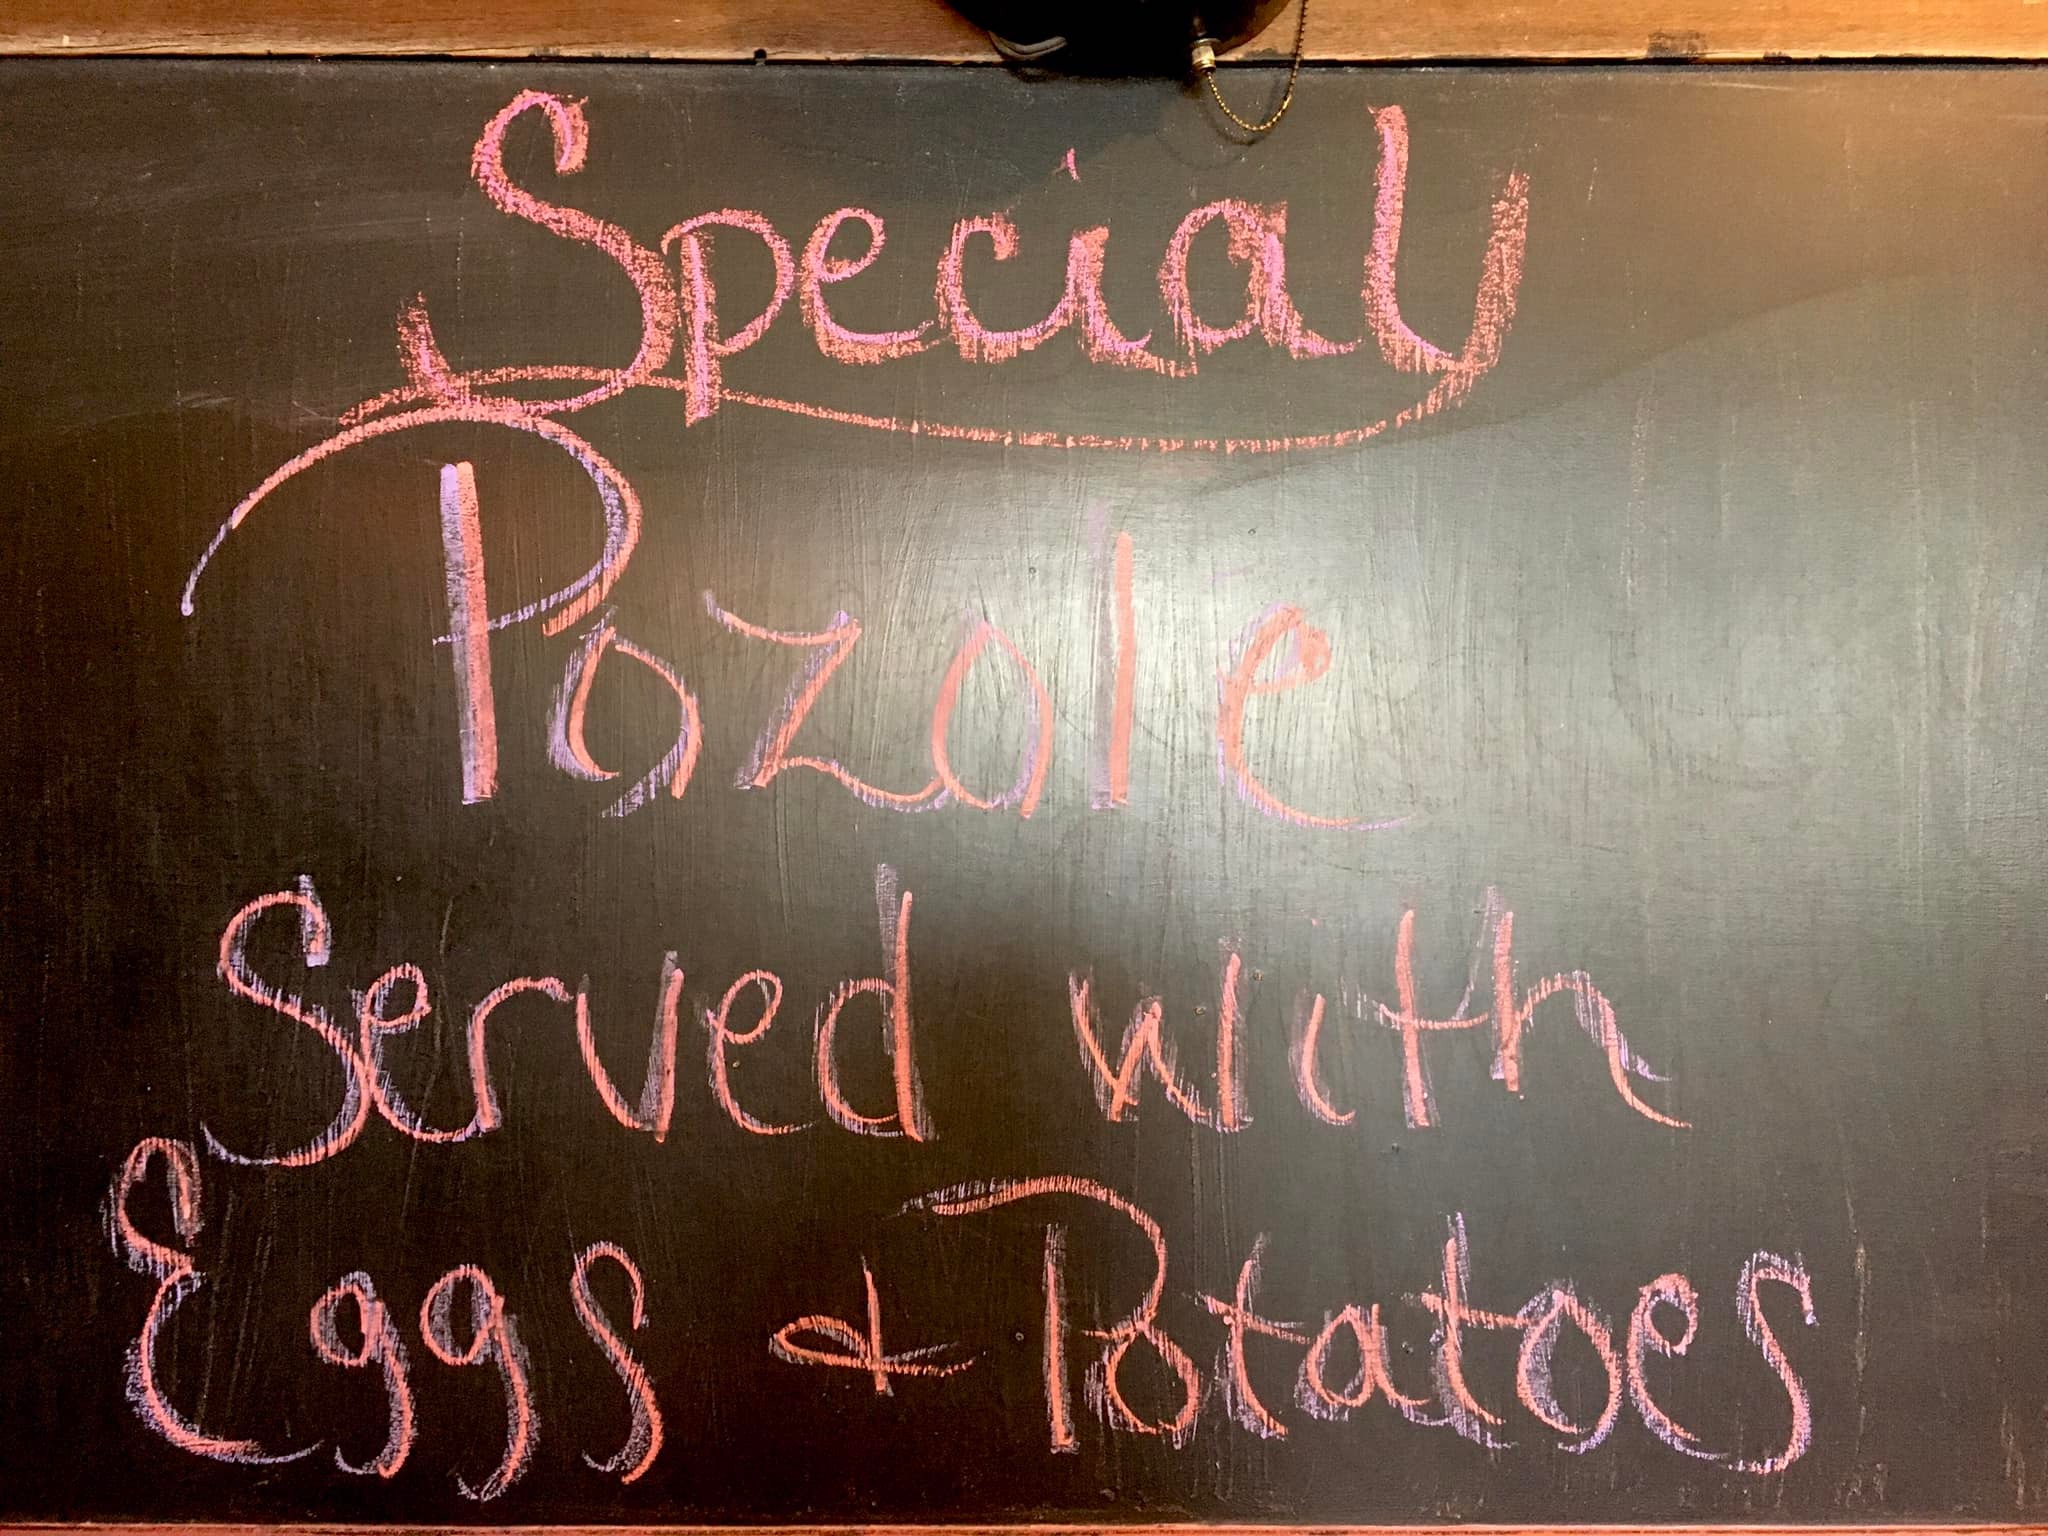 Special
Pozole
Served with
Eggs & Potatoes